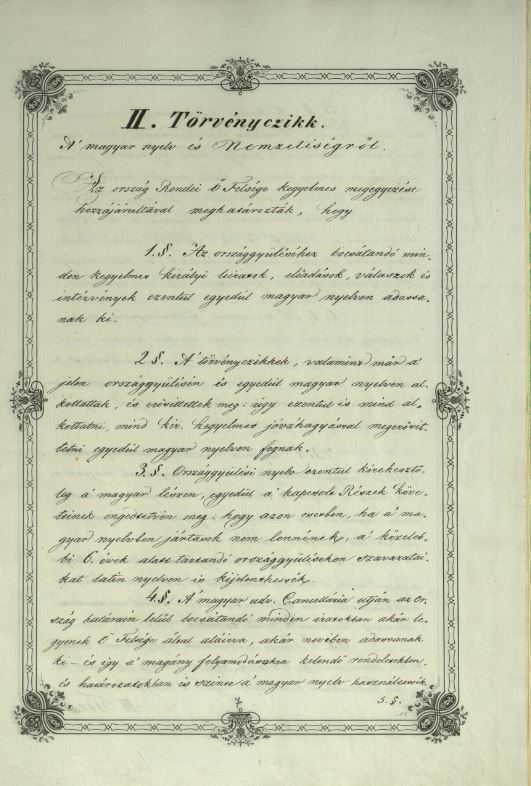 II. Törvényczikk.
A' magyar nyelv és Nemzetiségről.
Az ország Rendei Ő Felsége kegyelmes megegyezése
hozzájárultával meghatározták, hogy
1. §. Az országgyüléséhez bocsátandó min-
den kegyelmes királyi leiratok, előadások, válaszok és
intézvények ezentúl egyedül magyar nyelven adassa-
nak ki.
2. §. A' törvényczikkek, valamint már a'
jelen országgyülésén is egyedül magyar nyelven al-
kottattak, és erősittettek meg: úgy ezentul is mind al-
kottatni, mind kir. kegyelmes jóváhagyással megerősit-
tetni egyedül magyar nyelven fognak.
3. §. Országgyülési nyelv ezentul kirekesztő-
leg a' magyar lészen, egyedül a' kapcsolt Részek köve-
teinek engedtetvén meg: hogy azon esetben, ha a' ma-
gyar nyelvben jártasok nem lennének, a' közeleb-
bi 6. évek alatt tartandó országgyüléseken szavazatai-
kat latin nyelven is kijelenthessék.
4. §. A' magyar udv. Cancellária utján az or-
szág határain belül bocsátandó minden iratokban akár le-
gyenek Ő Felsége által aláirva, akár nevében adassanak
ki – és igy a' magány folyamodásokra kelendő rendeletekben,
és határozatokban is szinte a' magyar nyelv használtassék
7
5. §.